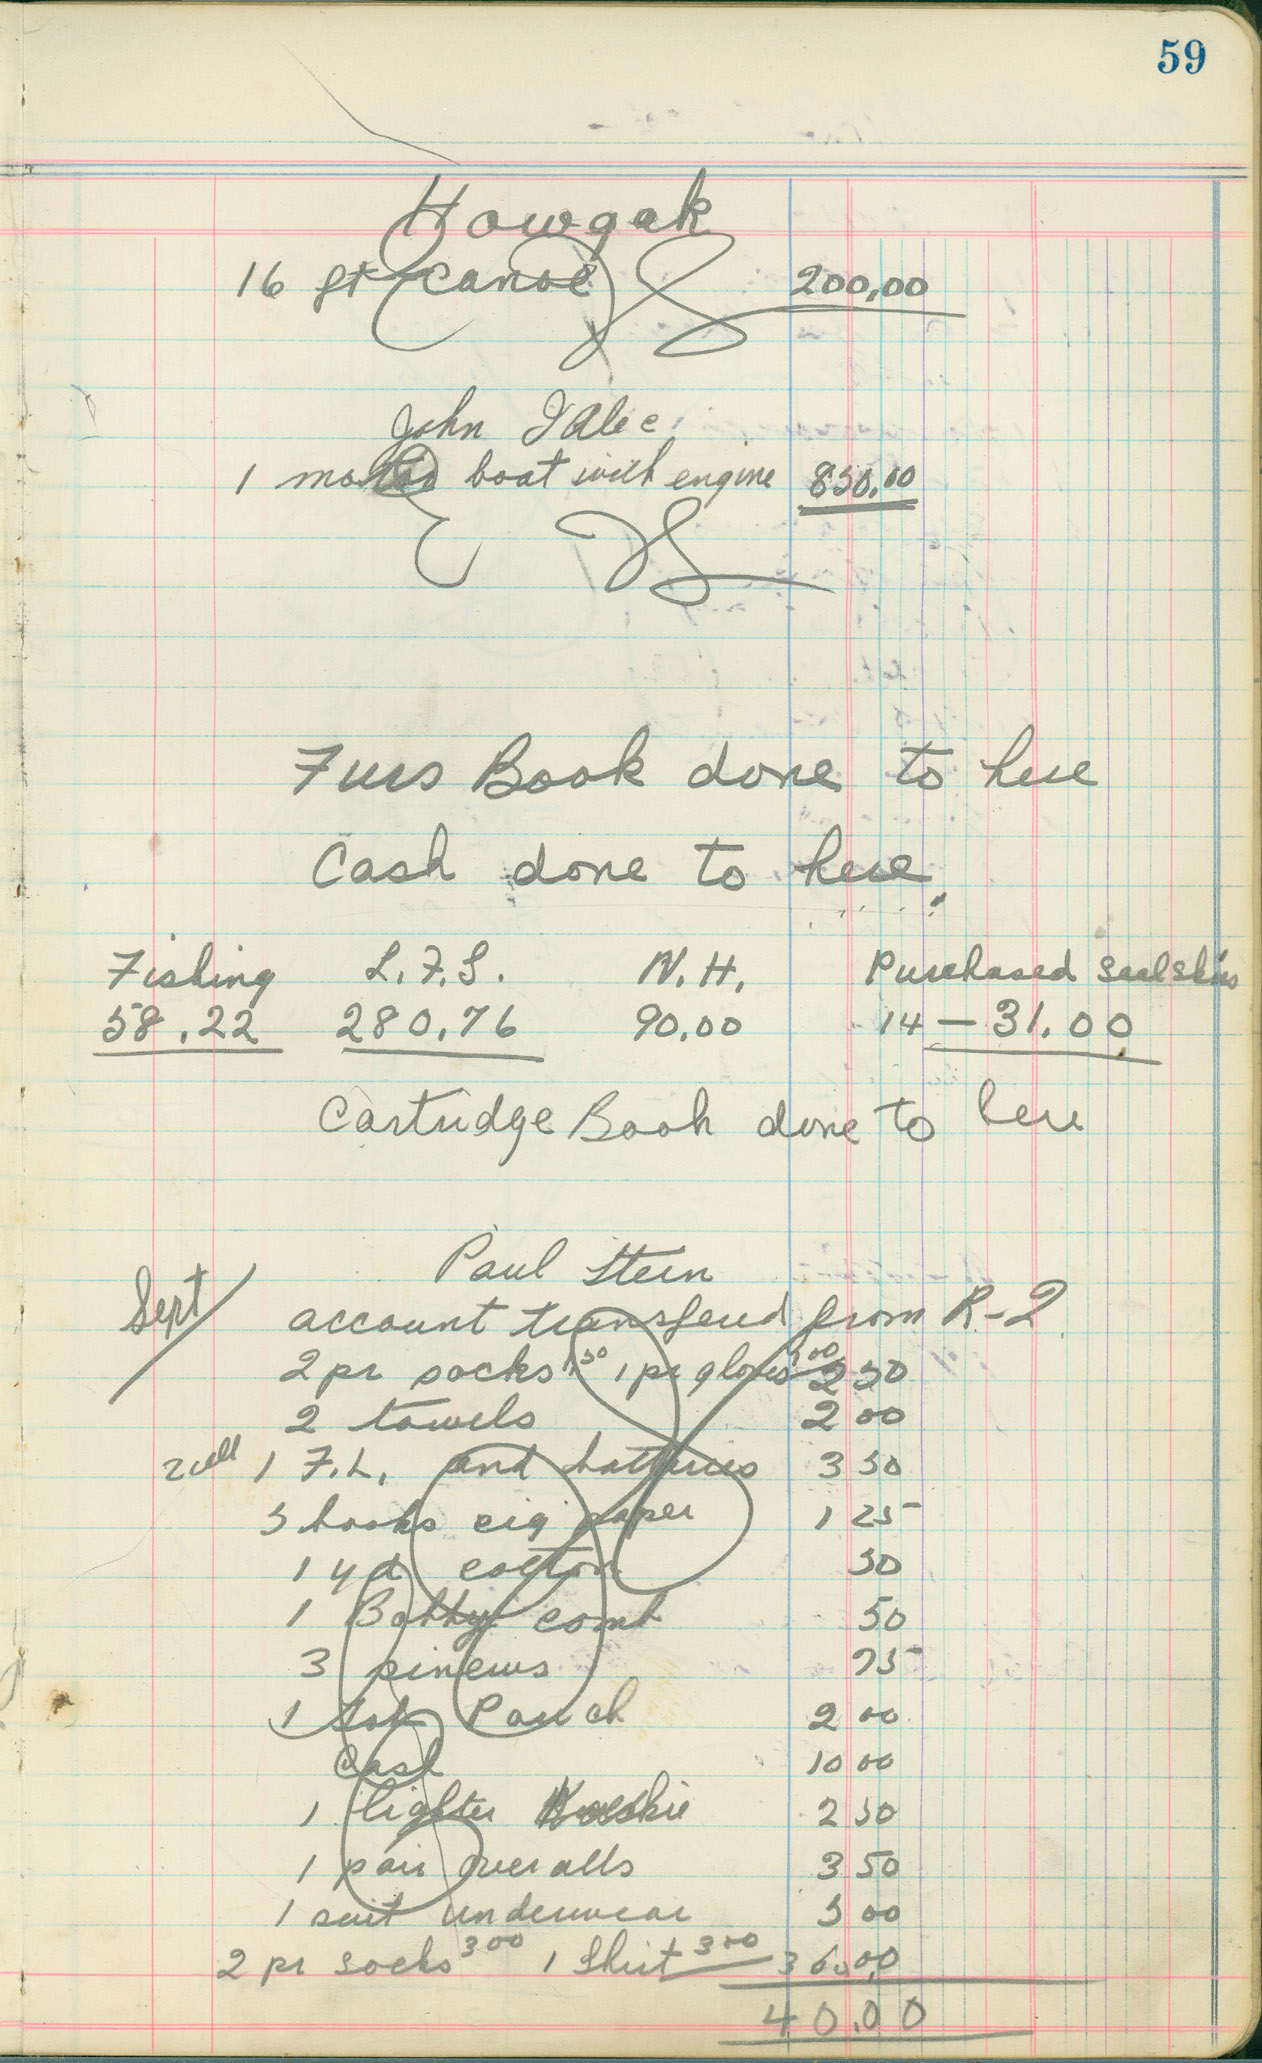 59
Howgak
16 ft canoe 200.00
John I Alec
1 motor boat with engine 850.00
Furs Book done to here
Cash done to here
Fishing L.F.S. N.H. Purchased sealskins
58.22 280.76 90.00 14 — 31.00
Cartridge Book done to here
Paul Stein
Sept account transferd from R-2
2 pr socks 1 50 1 pr gloves 1 00 2 50
2 towels 2 00
2 cell 1 F.L. and batteries 3 50
5 books cig paper 1 25
1 yd cotton 50
1 Bobby comb 50
3 75
1 Tob Pouch 2 00
Cash 10 00
1 lighter 2 50
1 pair overalls 3 50
1 suit underwear 5 00
2 pr socks 3 00 1 Shirt 3 00 6.00
40.00